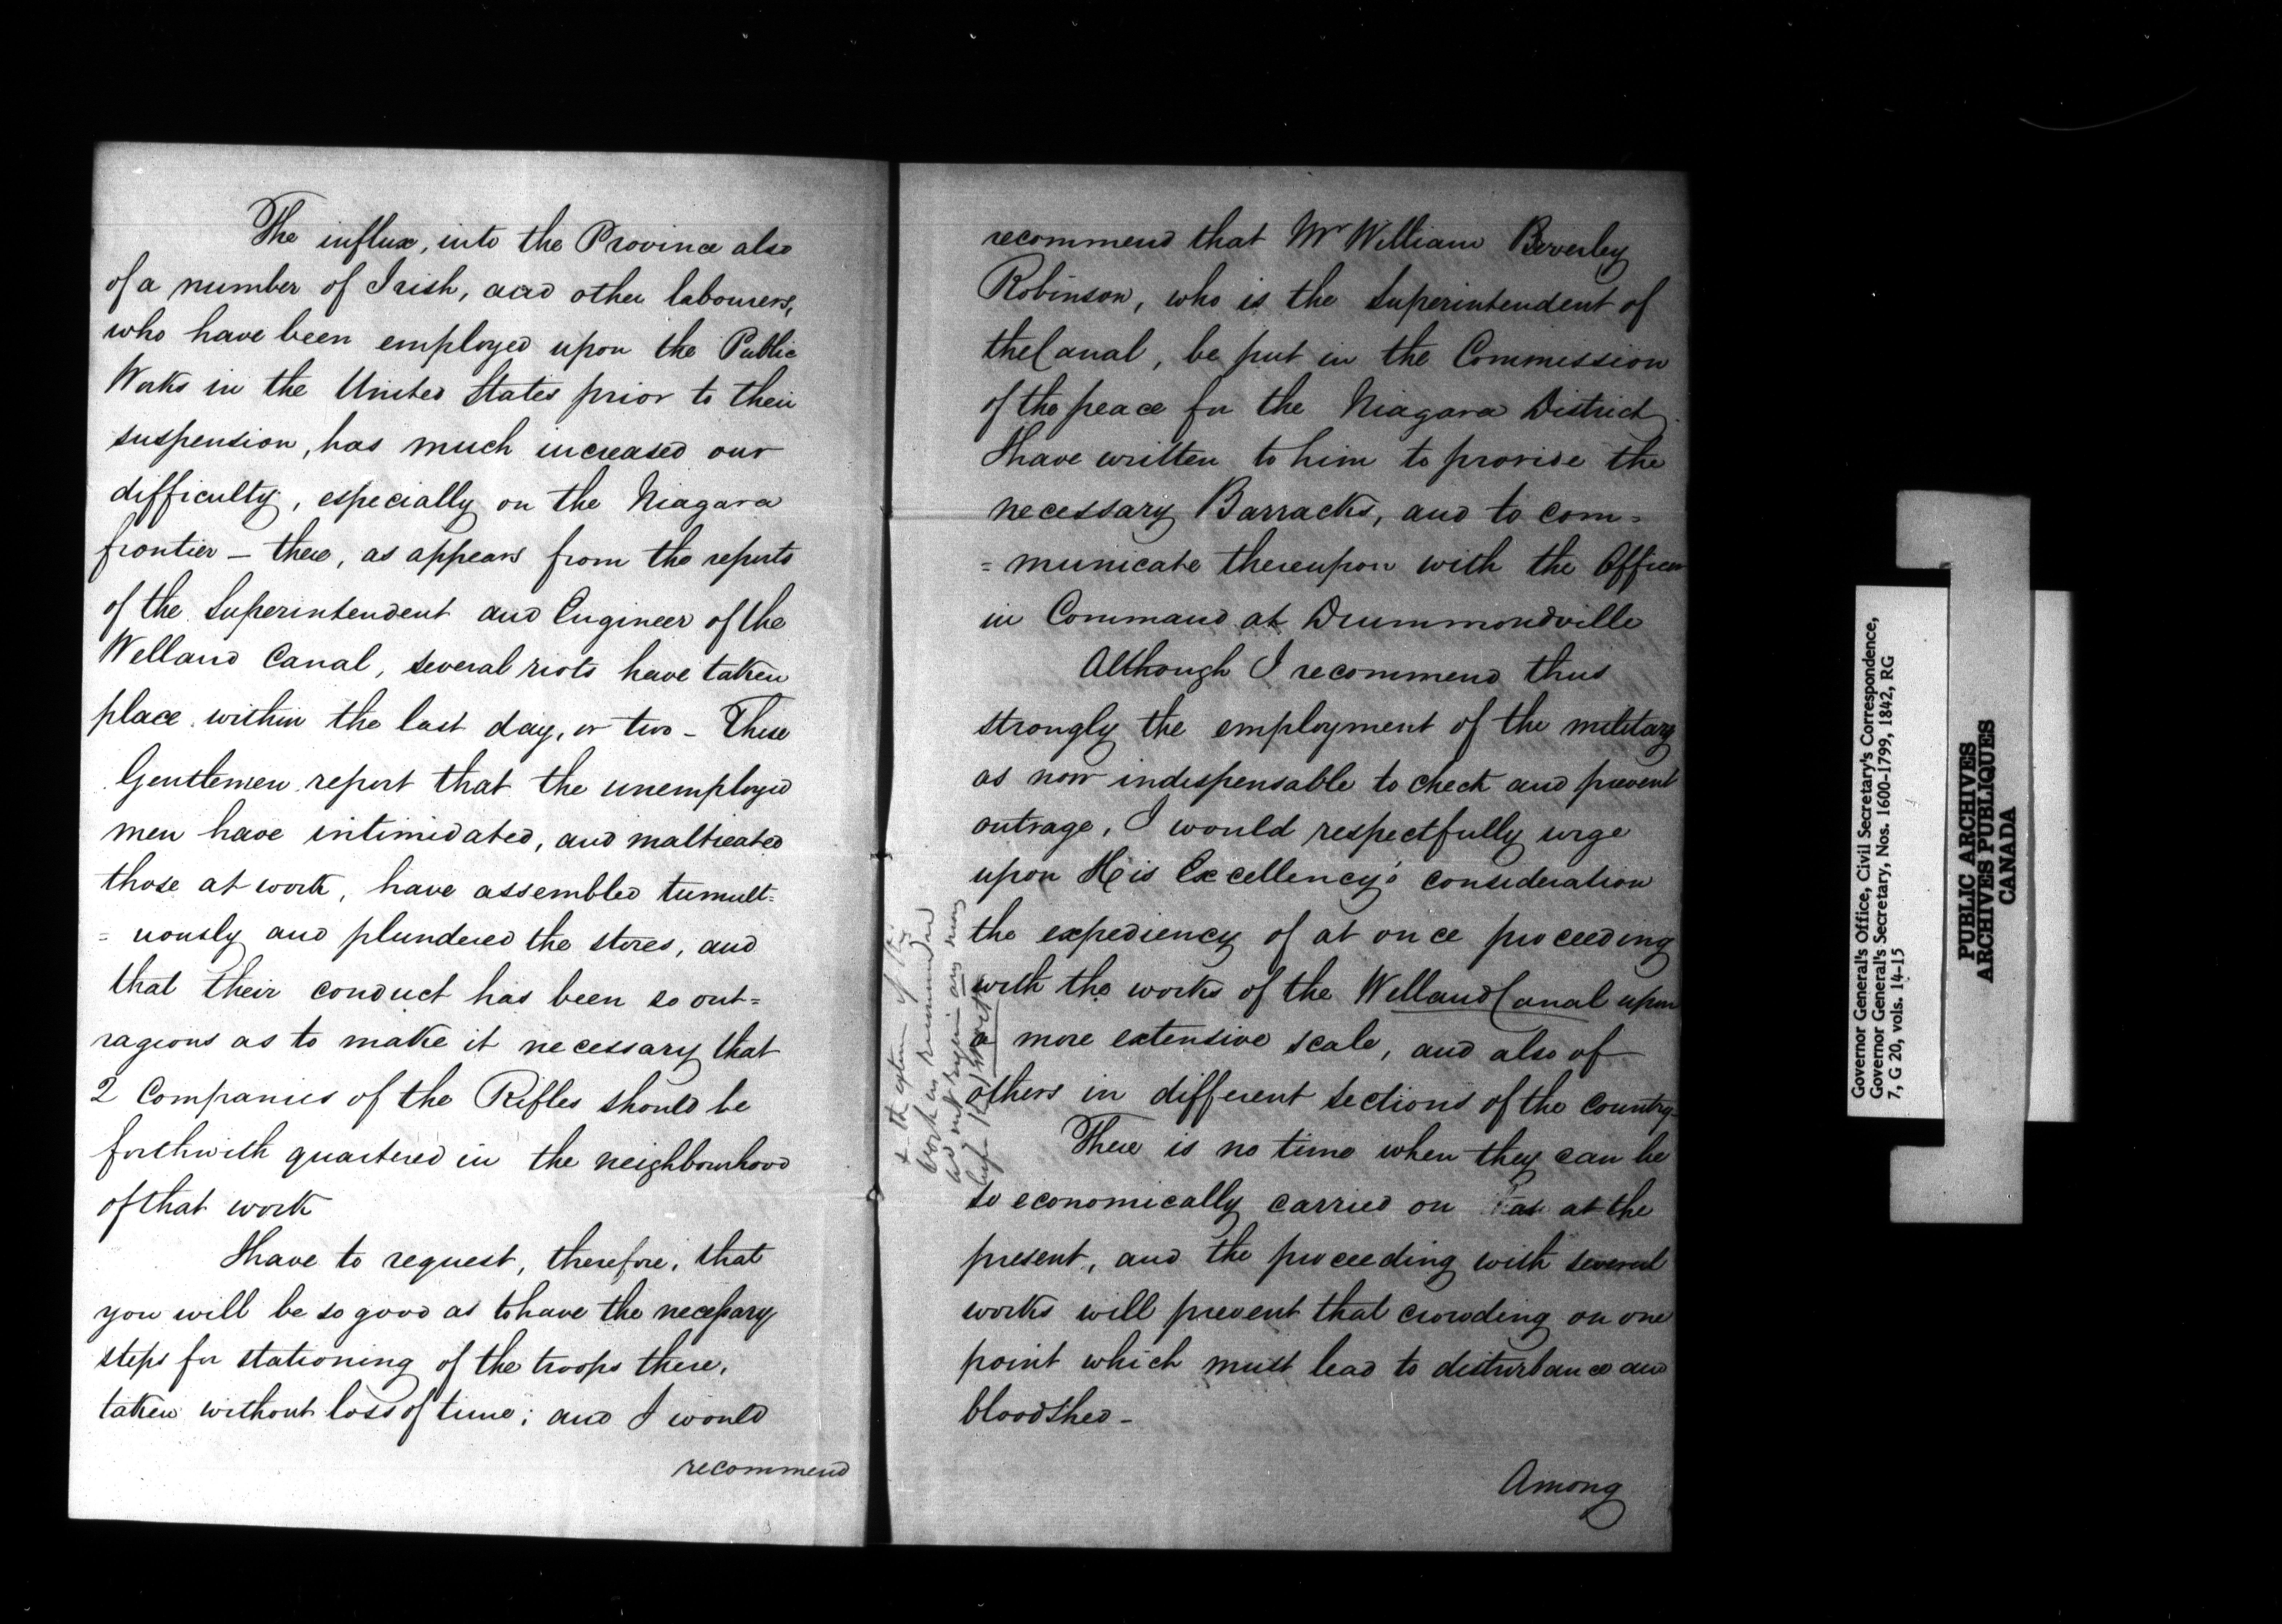 The influx, into the Province also
of a number of Irish, and other labourers,
who have been employed upon the Public
Works in the United States prior to their
suspension, has much increased our
difficulty, especially on the Niagara
frontier – there, as appears from the reports
of the Superintendent and Engineer of the
Welland Canal, several riots have taken
place within the last day, or two – These
Gentlemen report that the unemployed
men have intimidated, and maltreated
those at work, have assembled tumult=
=uously and plundered the stores, and
that their conduct has been so out=
ragious as to make it necessary that
2 Companies of the Rifles should be
forthwith quartered in the neighbourhood
of that work
I have to request, therefore, that
you will be so good as to have the necessary
steps for stationing of the troops there,
taken without loss of time; and I would
recommend
recommend that Mr William Beverley
Robinson, who is the Superintendent of
the Canal, be put in the Commission
of the peace for the Niagara District
I have written to him to provide the
necessary Barracks, and to com=
=municate thereupon with the Officer
in Command at Drummondville
Although I recommend thus
strongly the employment of the military
as now indispensable to check and prevent
outrage, I would respectfully urge
upon His Excellency's consideration
the expediency of at once proceeding
with the works of the Welland Canal upon
a more extensive scale, and also of
others in different sections of the Country
There is no time when they can be
so economically carried on as at the
present, and the proceeding with several
works will prevent that crowding on one
point which must lead to disturbance and
bloodshed –
Among
Governor General's Office, Civil Secretary's Correspondence,
Governor General's Secretary, Nos. 1600-1799, 1842, RG
7, G 20, vols. 14-15
PUBLIC ARCHIVES
ARCHIVES PUBLIQUES
CANADA